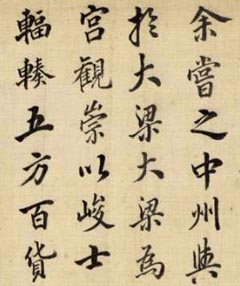 余嘗之中州與
於大梁大梁為
宮觀崇以峻士
輻輳五方百貨